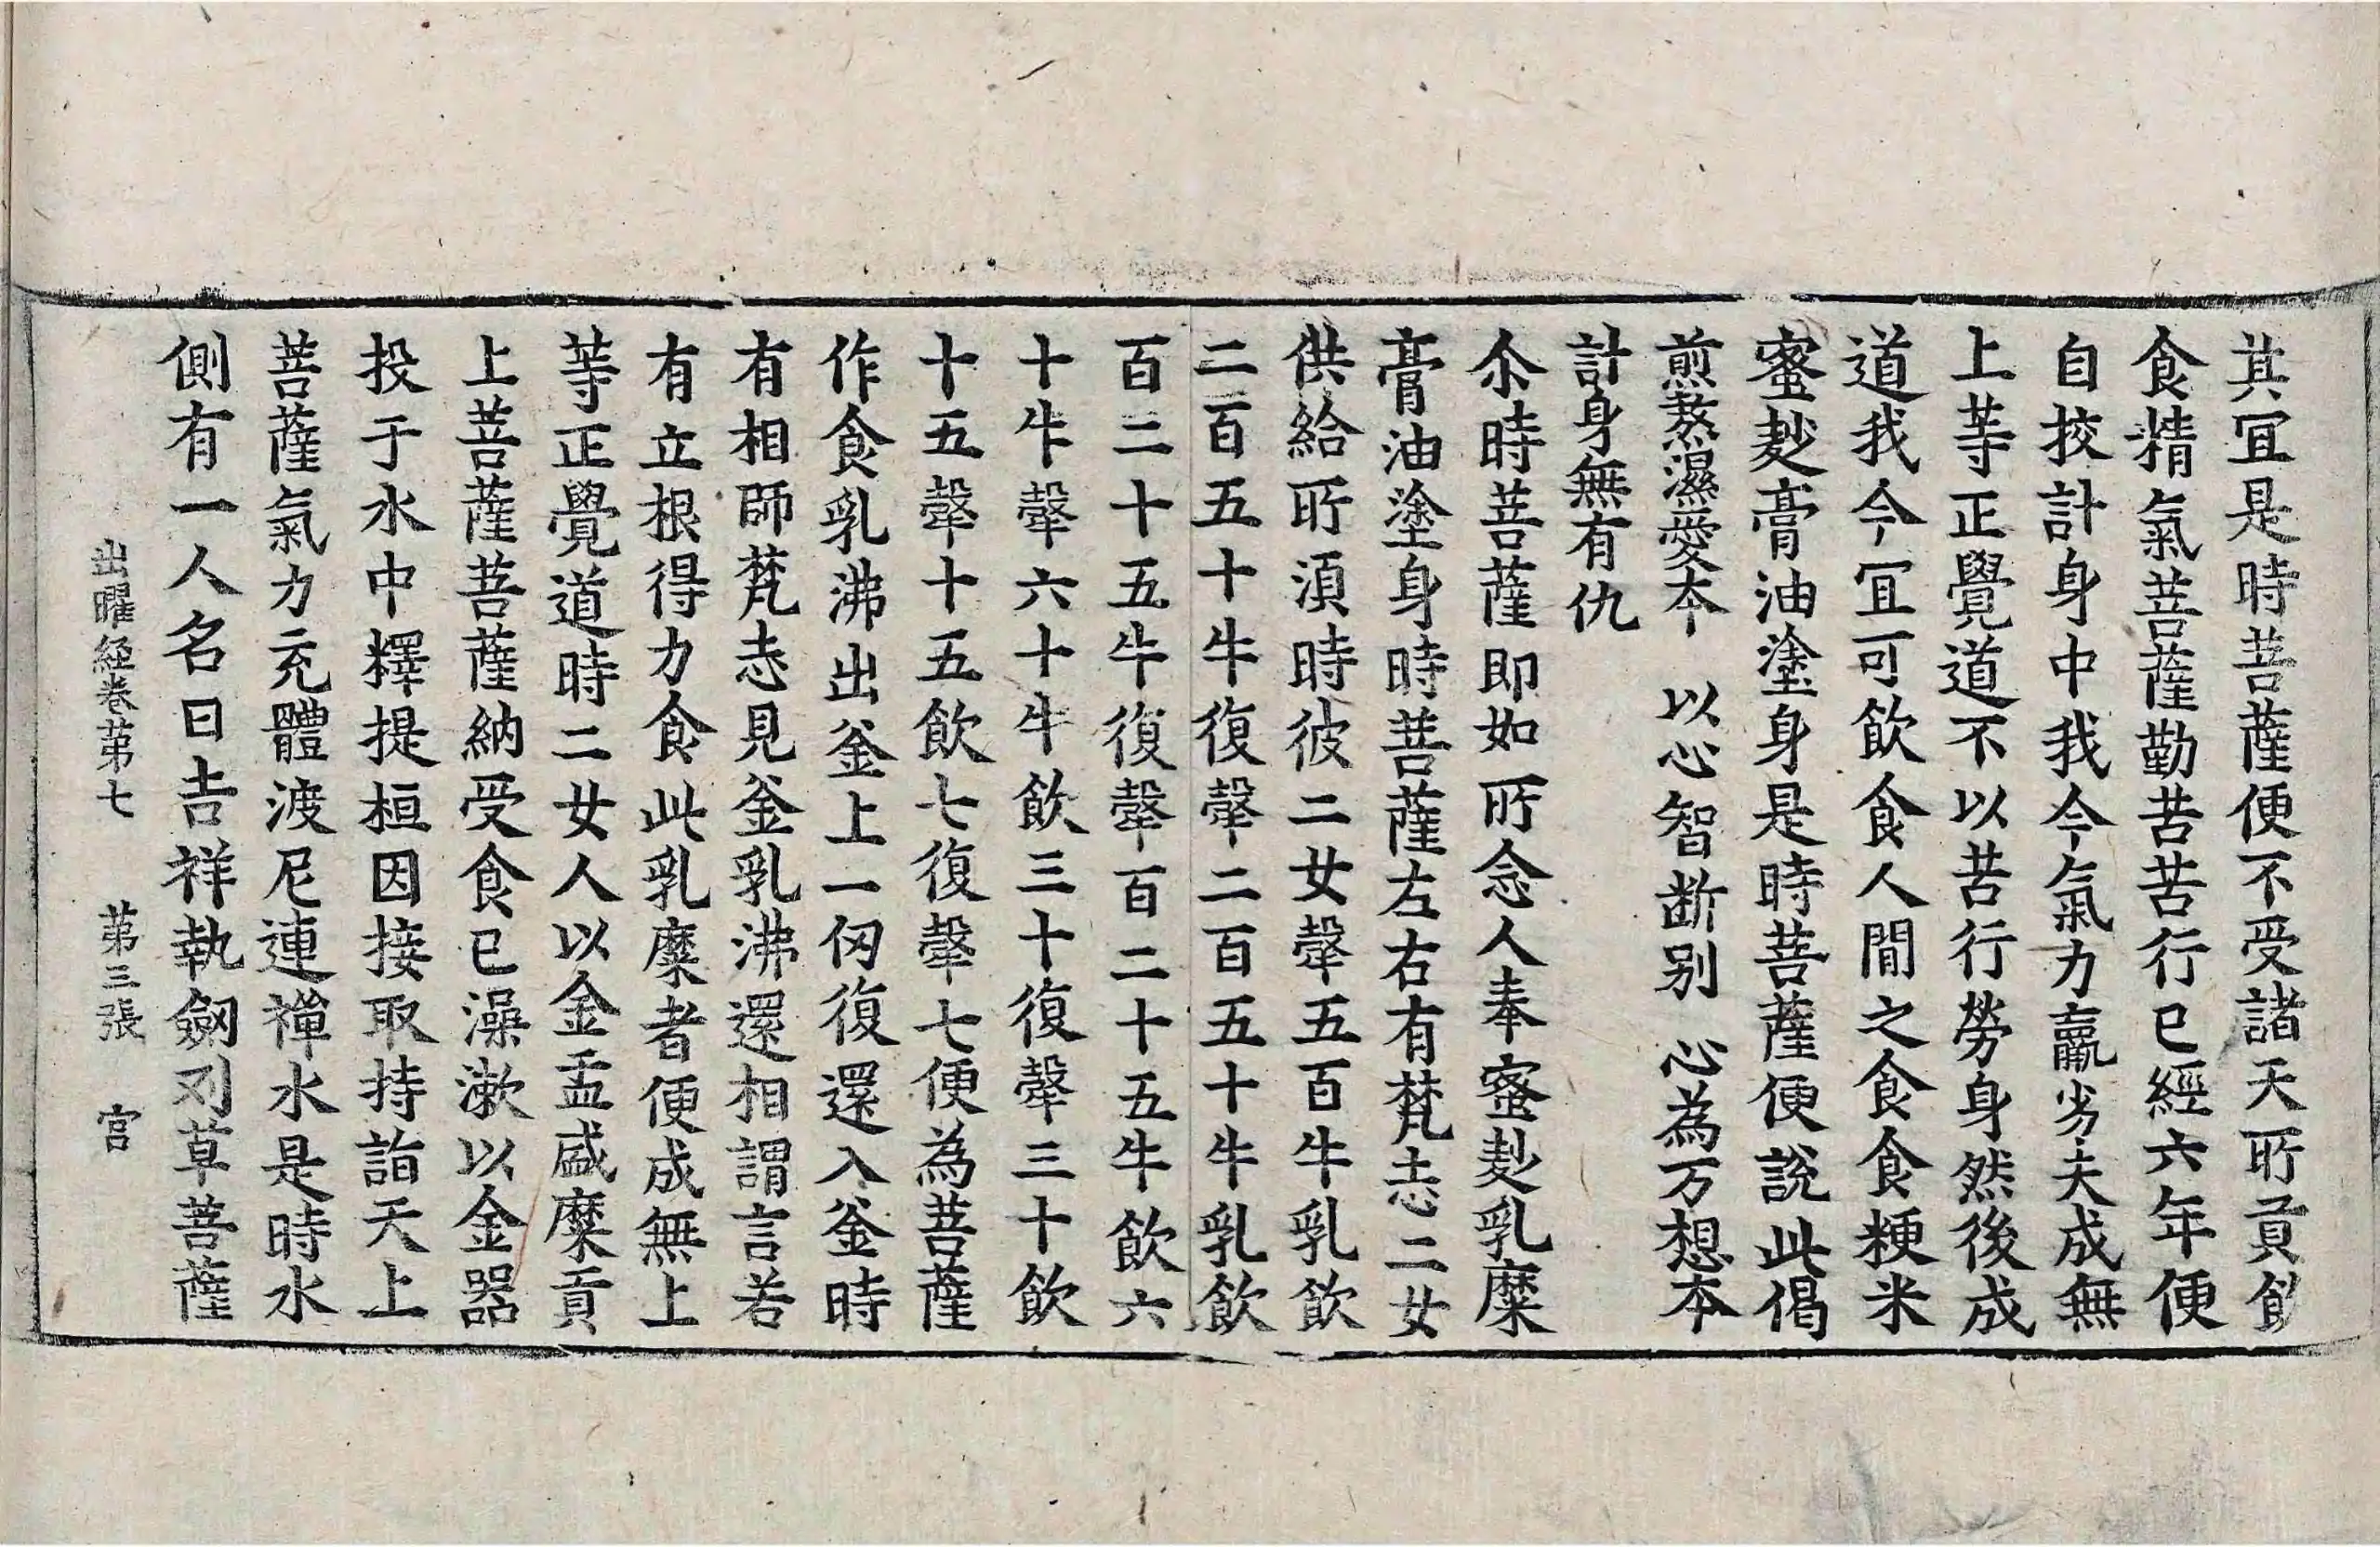 其冝是時菩薩便不受諸天所貢飲
食精氣菩薩勤苦苦行已經六年便
自挍計身中我今氣力羸劣夫成無
上等正覺道不以苦行勞身然後成
道我今冝可飲食人間之食食粳米
蜜麨膏油塗身是時菩薩便說此偈
煎熬濕愛本　以心智断别　心為万想本
計身無有仇
尒時菩薩即如所念人奉蜜麨乳糜
膏油塗身時菩薩左右有梵志二女
供給所湏時彼二女㲉五百牛乳飲
二百五十牛復㲉二百五十牛乳飲
百二十五牛復㲉百二十五牛飲六
十牛㲉六十牛飲三十復㲉三十飲
十五㲉十五飲七復㲉七便為菩薩
作食乳沸出釜上一仞復還入釜時
有相師梵志見釜乳沸還相謂言若
有立根得力食此乳糜者便成無上
等正覺道時二女人以金盂盛糜貢
上菩薩菩薩納受食已澡漱以金器
投于水中釋提桓因接取持詣天上
菩薩氣力充體渡尼連禪水是時水
側有一人名曰吉祥執劒刈草菩薩
出曜経卷苐七　苐三張　宫